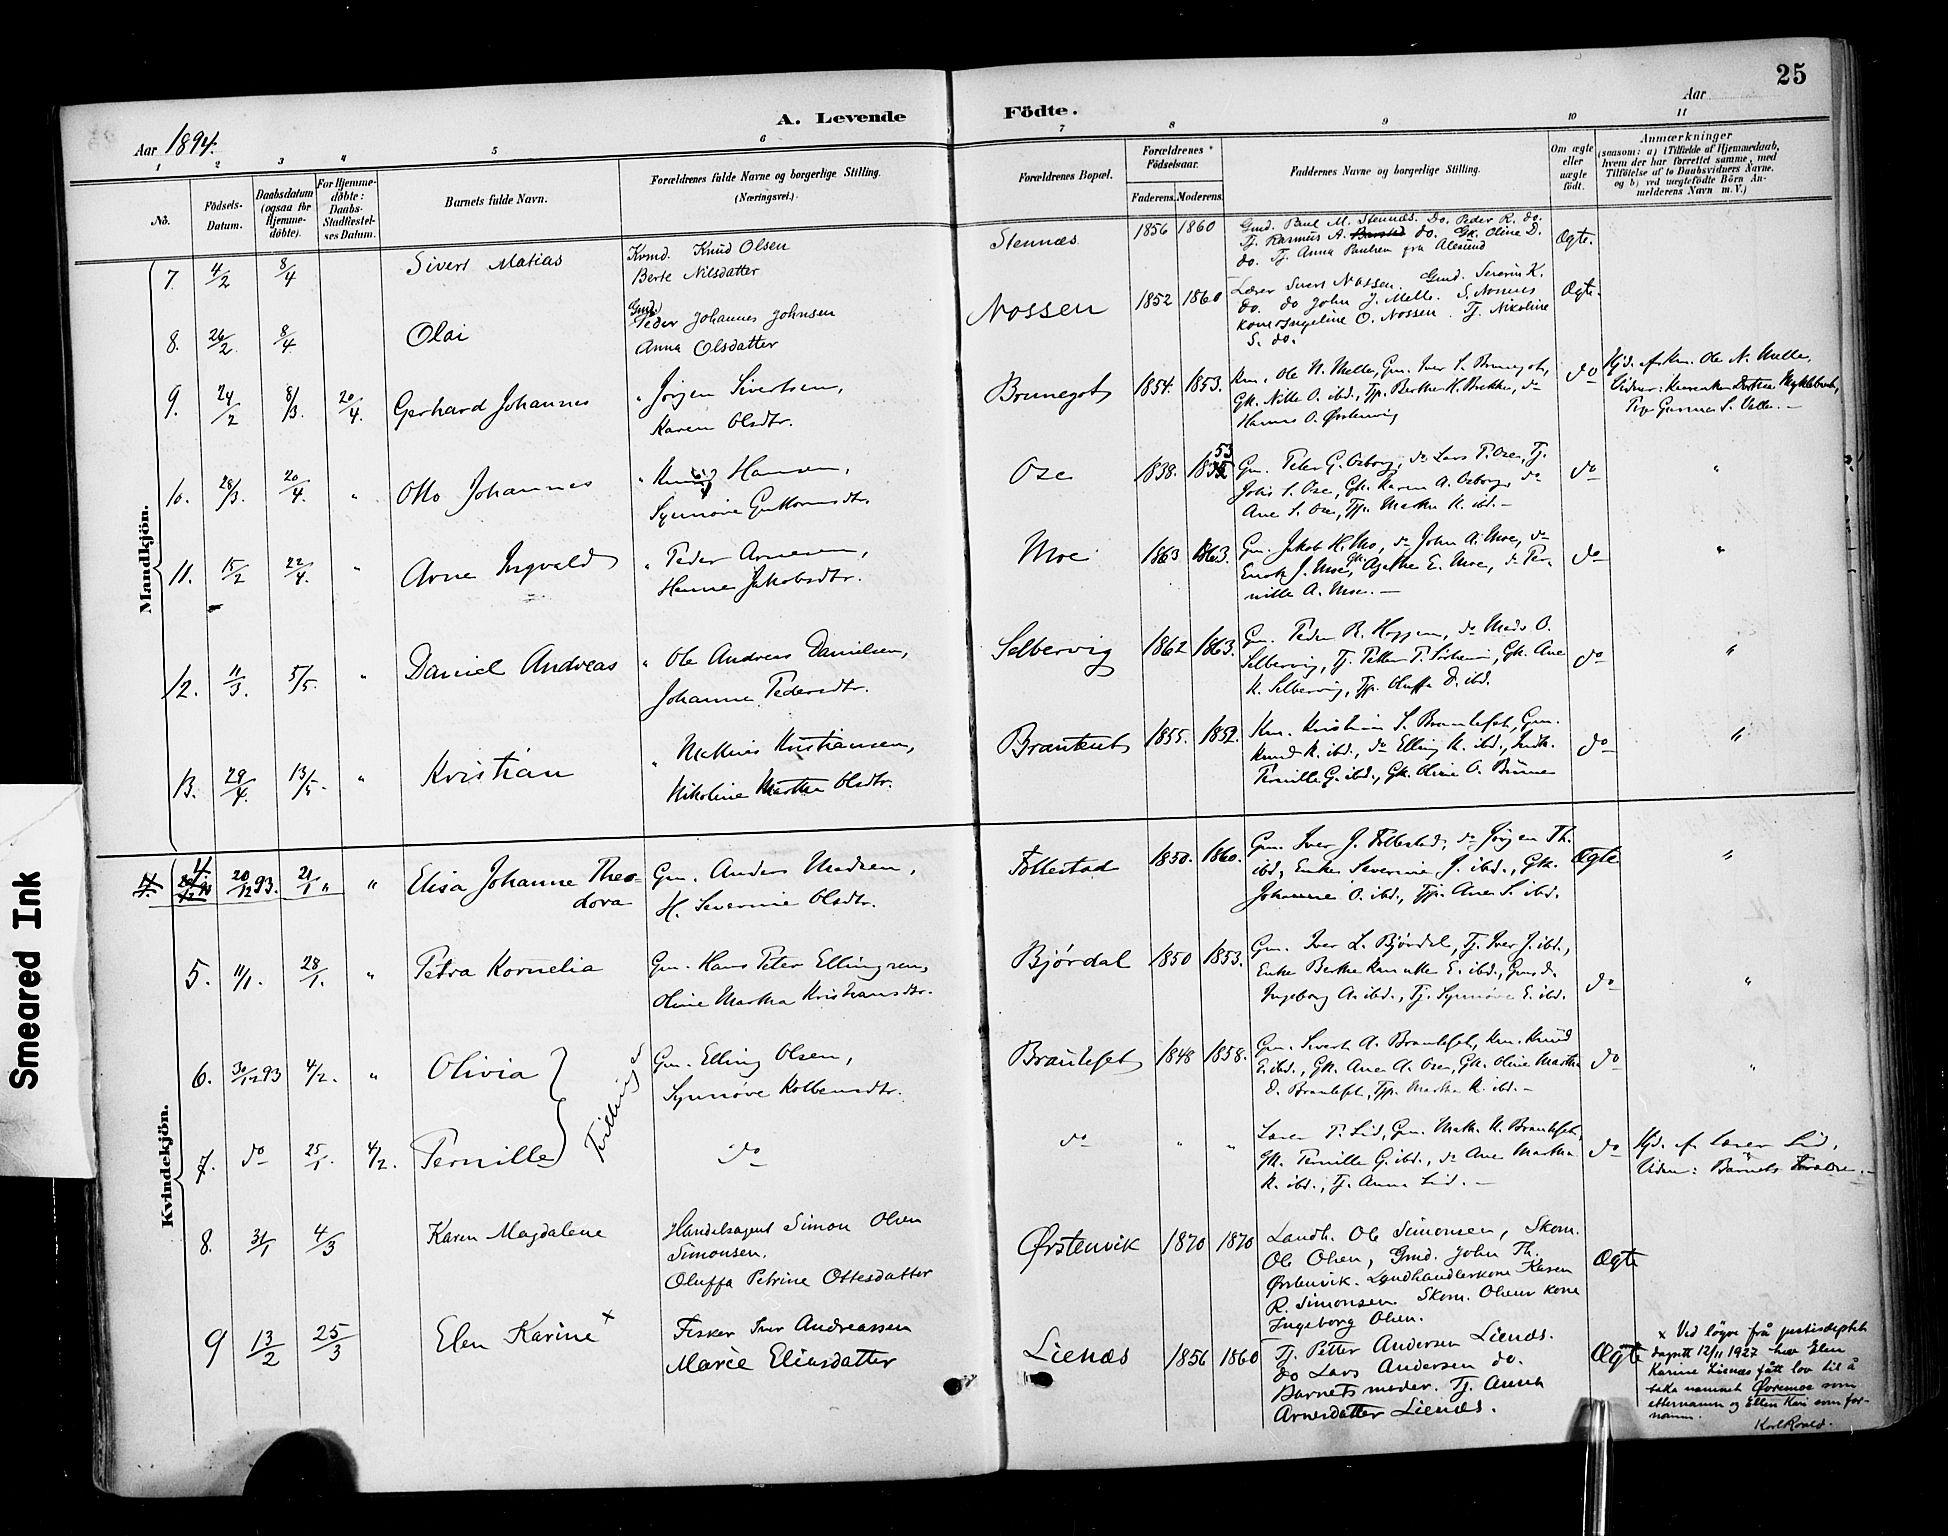 25
A. Levende Födte.
Aar 1894.
Aar
1 2 3 4 5 6 7 8 9 10 11
No.
Födsels-Datum.
Daabsdatum (ogsaa for Hjemme-döbte).
For Hjemme-döbte: Daabs-Stadfæstel-ses Datum.
Barnets fulde Navn.
Forældrenes fulde Navne og borgerlige Stilling.
(Næringsvei.)
Forældrenes Bopæl.
Forældrenes Födselsaar.
Faderens. Moderens.
Faddernes Navne og borgerlige Stilling.
Om ægte eller uægte födt.
Anmærkninger
(saasom: a) i Tilfælde af Hjemmedaab,
hvem der har forrettet samme, med
Tilföielse af to Daabsvidners Navne,
og b) ved uægtefödte Börn An-
melderens Navn m. V.)
Mandkjön.
7. 4/2 8/4 Sivert Matias
Kvmd. Knud Olsen
Berte Nilsdatter
Stennæs 1856 1860
Gmd. Paul M. Stennæs. Do. Peder K. do.
Tj. Rasmus A. do. Gk. Oline D.
do. Tj. Anna Paulsen fra Alesund
Ægte.
8. 26/2 8/4 Olai
Gmd. Peder Johannes Johnsen
Anna Olsdatter
Nossen 1852 1860
Lærer Sivert Nossen. Gmd. Severin K.
do. do John J. Melle. S. Nosnes
kone Ingeline O. Nossen. Tj. Nikoline
S. do.
Ægte.
9. 24/2 8/3. 20/4. Gerhard Johannes
" Jörgen Sivertsen,
Karen Olsdtr.
Brunegot 1854. 1853.
Km. Ole N. Melle, Gm. Iver S. Brunegot,
Gk. Nille O. ibd., Tjp. Berthe K. Brekke, do
Hanna O. Ørstenvig
do
Hjd. af Km. Ole N. Melle,
10. 28/3. 20/4. " Otto Johannes
" Hansen,
Synnöve Guttormsdtr.
Ose 1838. 53
Gm. Peter G. Osborg, do Lars P. Ose, Tj.
Johs S. Ose, Gk. Karen A. Osborg, do
Ane S. Ose, Tjp. Marthe K. ibd. –
do "
11. 15/2 22/4. " Arne Ingvald
" Peder Arnesen,
Hanne Jakobsdtr.
Moe 1863 1863.
Gm. Jakob K. Mo, do John A. Moe, do
Enok J. Moe, Gk Agathe E. Moe, do Per-
nille A. Moe. –
do "
12. 11/3. 5/5. " Daniel Andreas
" Ole Andreas Danielsen,
Johanne Pedersdtr.
Selbervig 1862 1863.
Gm. Peder R. Hoggen, do Mads O.
Selbervig, Tj. Petter P. , Gk. Ane
K. Selbervig, Tjp. Oluffa D. ibd.
do "
13. 29/4. 13/5. " Kristian
" Mathias Kristiansen,
Nikoline Martha Olsdtr.
1855. 1852.
Km. Kristian S. Brauteset, Gm.
Knud K. ibd., do Elling K. ibd., Indk.
Pernille G. ibd., Gk. Oline O.
do "
Kvindekjön.
4. 20/12 93. 21/1 " " Elisa Johanne Theo-
dora
Gm. Anders Madsen,
H. Severine Olsdtr.
Follestad 1850. 1860.
Gm. Iver J. Follestad, do Jörgen Th.
ibd, Enke Severine J. ibd., Gk.
Johanne O. ibd., Tjp. Ane S. ibd.
Ægte "
5. 11/1. 28/1. " Petra Kornelia
Gm. Hans Peter Ellingsen,
Oline Martha Kristiansdtr.
Bjørdal 1850 1853.
Gm. Iver L. Björdal, Tj. Iver J. ibd.,
Enke Berthe Karine E. ibd., Gmsd.
Ingeborg A. ibd., Tj. Synnöve E. ibd.
do "
6. 30/12 93 4/2. " Olivia
Tvillinger
Gm. Elling Olsen,
Synnöve Kolbensdtr.
Brauteset 1848 1858.
Gm. Sivert A. Brauteset, Km. Knud
E. ibd., Gk. Ane A. Ose, Gk. Oline Martha
D. Brauteset, Tjp. Martha K. ibd. –
do "
7. do 25/1. 4/2. Pernille
do
do " "
Lærer P. Lid, Gm. Math. K. Brauteset,
Gk. Pernille G. ibd., do Ane Martha
K. ibd., Tj. Anna Lid. –
do
Hjd. af Lærer Lid,
Vidner: Barnets Forældre. –
8. 31/1 4/3 Karen Magdalene
Handelsagent Simon Olsen
Simonsen.
Oluffa Petrine Ottesdatter
Ørstenvik 1870 1870
Landh. Ole Simonsen, Skom.
Ole Olsen, Gmd. John Th.
Ørstenvik. Landhandlerkone Karen
R. Simonsen. Skom. Olsens kone
Ingeborg Olsen.
Ægte
9 13/2 25/3 Elen Karine x
Fisker Iver Andreassen
Marie Eliasdatter
Lienæs 1856 1860
Tj. Petter Andersen Lienæs.
do Lars Andersen do.
Barnets moder. Tj. Anna
Arnesdatter Lienæs.
Ægte
x Ved löyve frå justisdeptet
dagsett 12/11 1927 hev Elen
Karine Lienæs fått lov til å
taka namnet Øvremoe som
etternamn og Ellen Kari som for-
namn.
Karl Rovald.
Smeared Ink